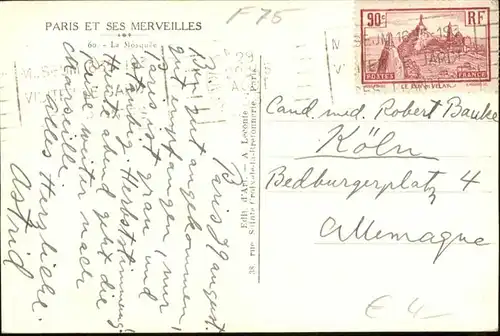 PARIS ET SES MERVEILLES
60 - La Mosquée
F 75
Paris 29 August.
B
Bin gut angekommen,
gut empfangen, nur
Paris ist grau und
Herbststimmung.
Heute abend geht die
Reise weiter nach
Marseille.
Alles Herzliche.
Astrid
Edit. d'Art - A. Leconte
38, rue Sainte-Croix-de-la-Bretonnerie, Paris
90c
RF
POSTES
FRANCE
LE PUY-EN-VELAY
Cand. med. Robert Bauke
Köln
Bedburgerplatz 4
Allemagne
€ 4-